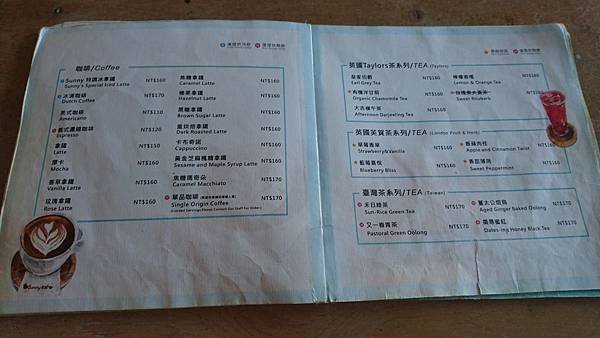 咖啡/Coffee
Sunny 特調冰拿鐵 NT$160
Sunny's Special Iced Latte
冰滴咖啡 NT$170
Dutch Coffee
美式咖啡 NT$110
Americano
義式濃縮咖啡 NT$120
Espresso
拿鐵 NT$150
Latte
摩卡 NT$160
Mocha
香草拿鐵 NT$160
Vanilla Latte
玫瑰拿鐵 NT$160
Rose Latte
焦糖拿鐵 NT$160
Caramel Latte
榛果拿鐵 NT$160
Hazelnut Latte
黑糖拿鐵 NT$160
Brown Sugar Latte
重烘焙拿鐵 NT$160
Dark Roasted Latte
卡布奇諾 NT$160
Cappuccino
黃金芝麻楓糖拿鐵 NT$160
Sesame and Maple Syrup Latte
焦糖瑪奇朵 NT$170
Caramel Macchiato
單品咖啡 NT$170
Single Origin Coffee
(Limited Servings,Please Contact Our Staff For Order)
英國Taylors茶系列/TEA (Taylors)
皇家伯爵 NT$160
Earl Grey Tea
有機洋甘菊 NT$160
Organic Chamomile Tea
大吉嶺午茶 NT$160
Afternoon Darjeeling Tea
檸檬香橙 NT$160
Lemon & Orange Tea
NT$160
Sweet Rhubarb
英國芙質茶系列/TEA (London Fruit & Herb)
草莓香草 NT$160
Strawberry&Vanilla
藍莓嘉悅 NT$160
Blueberry Bliss
香蘋肉桂 NT$160
Apple and Cinnamon Twist
香甜薄荷 NT$160
Sweet Peppermint
臺灣茶系列/TEA (Taiwan)
禾日綠茶 NT$170
Sun-Rice Green Tea
又一春青茶 NT$170
Pastoral Green Oolong
薑太公焙烏 NT$170
Aged Ginger Baked Oolong
棗尋蜜紅 NT$170
Dates-ing Honey Black Tea